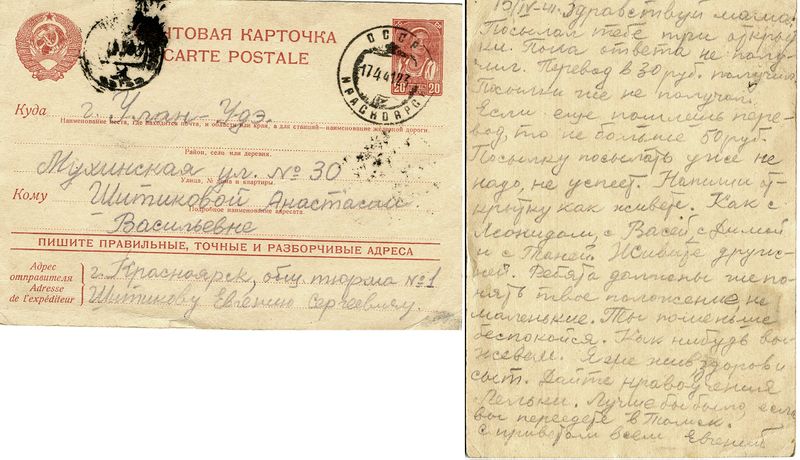 ПОЧТОВАЯ КАРТОЧКА
CARTE POSTALE
СССР
КРАСНОЯРСК
17 4 41
20 20
Куда г. Улан-Удэ.
Наименование места, где находится почта, и области или края, а для станций—наименование железной дороги.
Район, село или деревня.
Мухинская ул. № 30
Улица, № дома и квартиры.
Кому Шитиковой Анастасии
Подробное наименование адресата.
Васильевне
ПИШИТЕ ПРАВИЛЬНЫЕ, ТОЧНЫЕ И РАЗБОРЧИВЫЕ АДРЕСА
Адрес отправителя
Adresse de l'expéditeur
г. Красноярск, общ тюрма №1
Шитикову Евгению Сергеевичу.
Здравствуй мама!
Посылал тебе три открыт
ки. Пока ответа не полу-
чил. Перевод в 30 руб. получил
Посылки же не получал.
Если еще пошлешь пере-
вод, то не больше 50 руб.
Посылку посылать уже не
надо, не успеет. Напиши от
крытку как живете. Как с
Леонидом, с Васей, с Димой
и с Таней. Живите друж-
ней. Ребята должны же по-
нять твое положение, не
маленькие. Ты поменьше
беспокойся. Как нибудь вы-
живем. Я же жив здоров и
сыт. Дайте нравоучения
Лельки. Лучше бы было, если
вы переедете в Томск.
С приветом всем Евгений